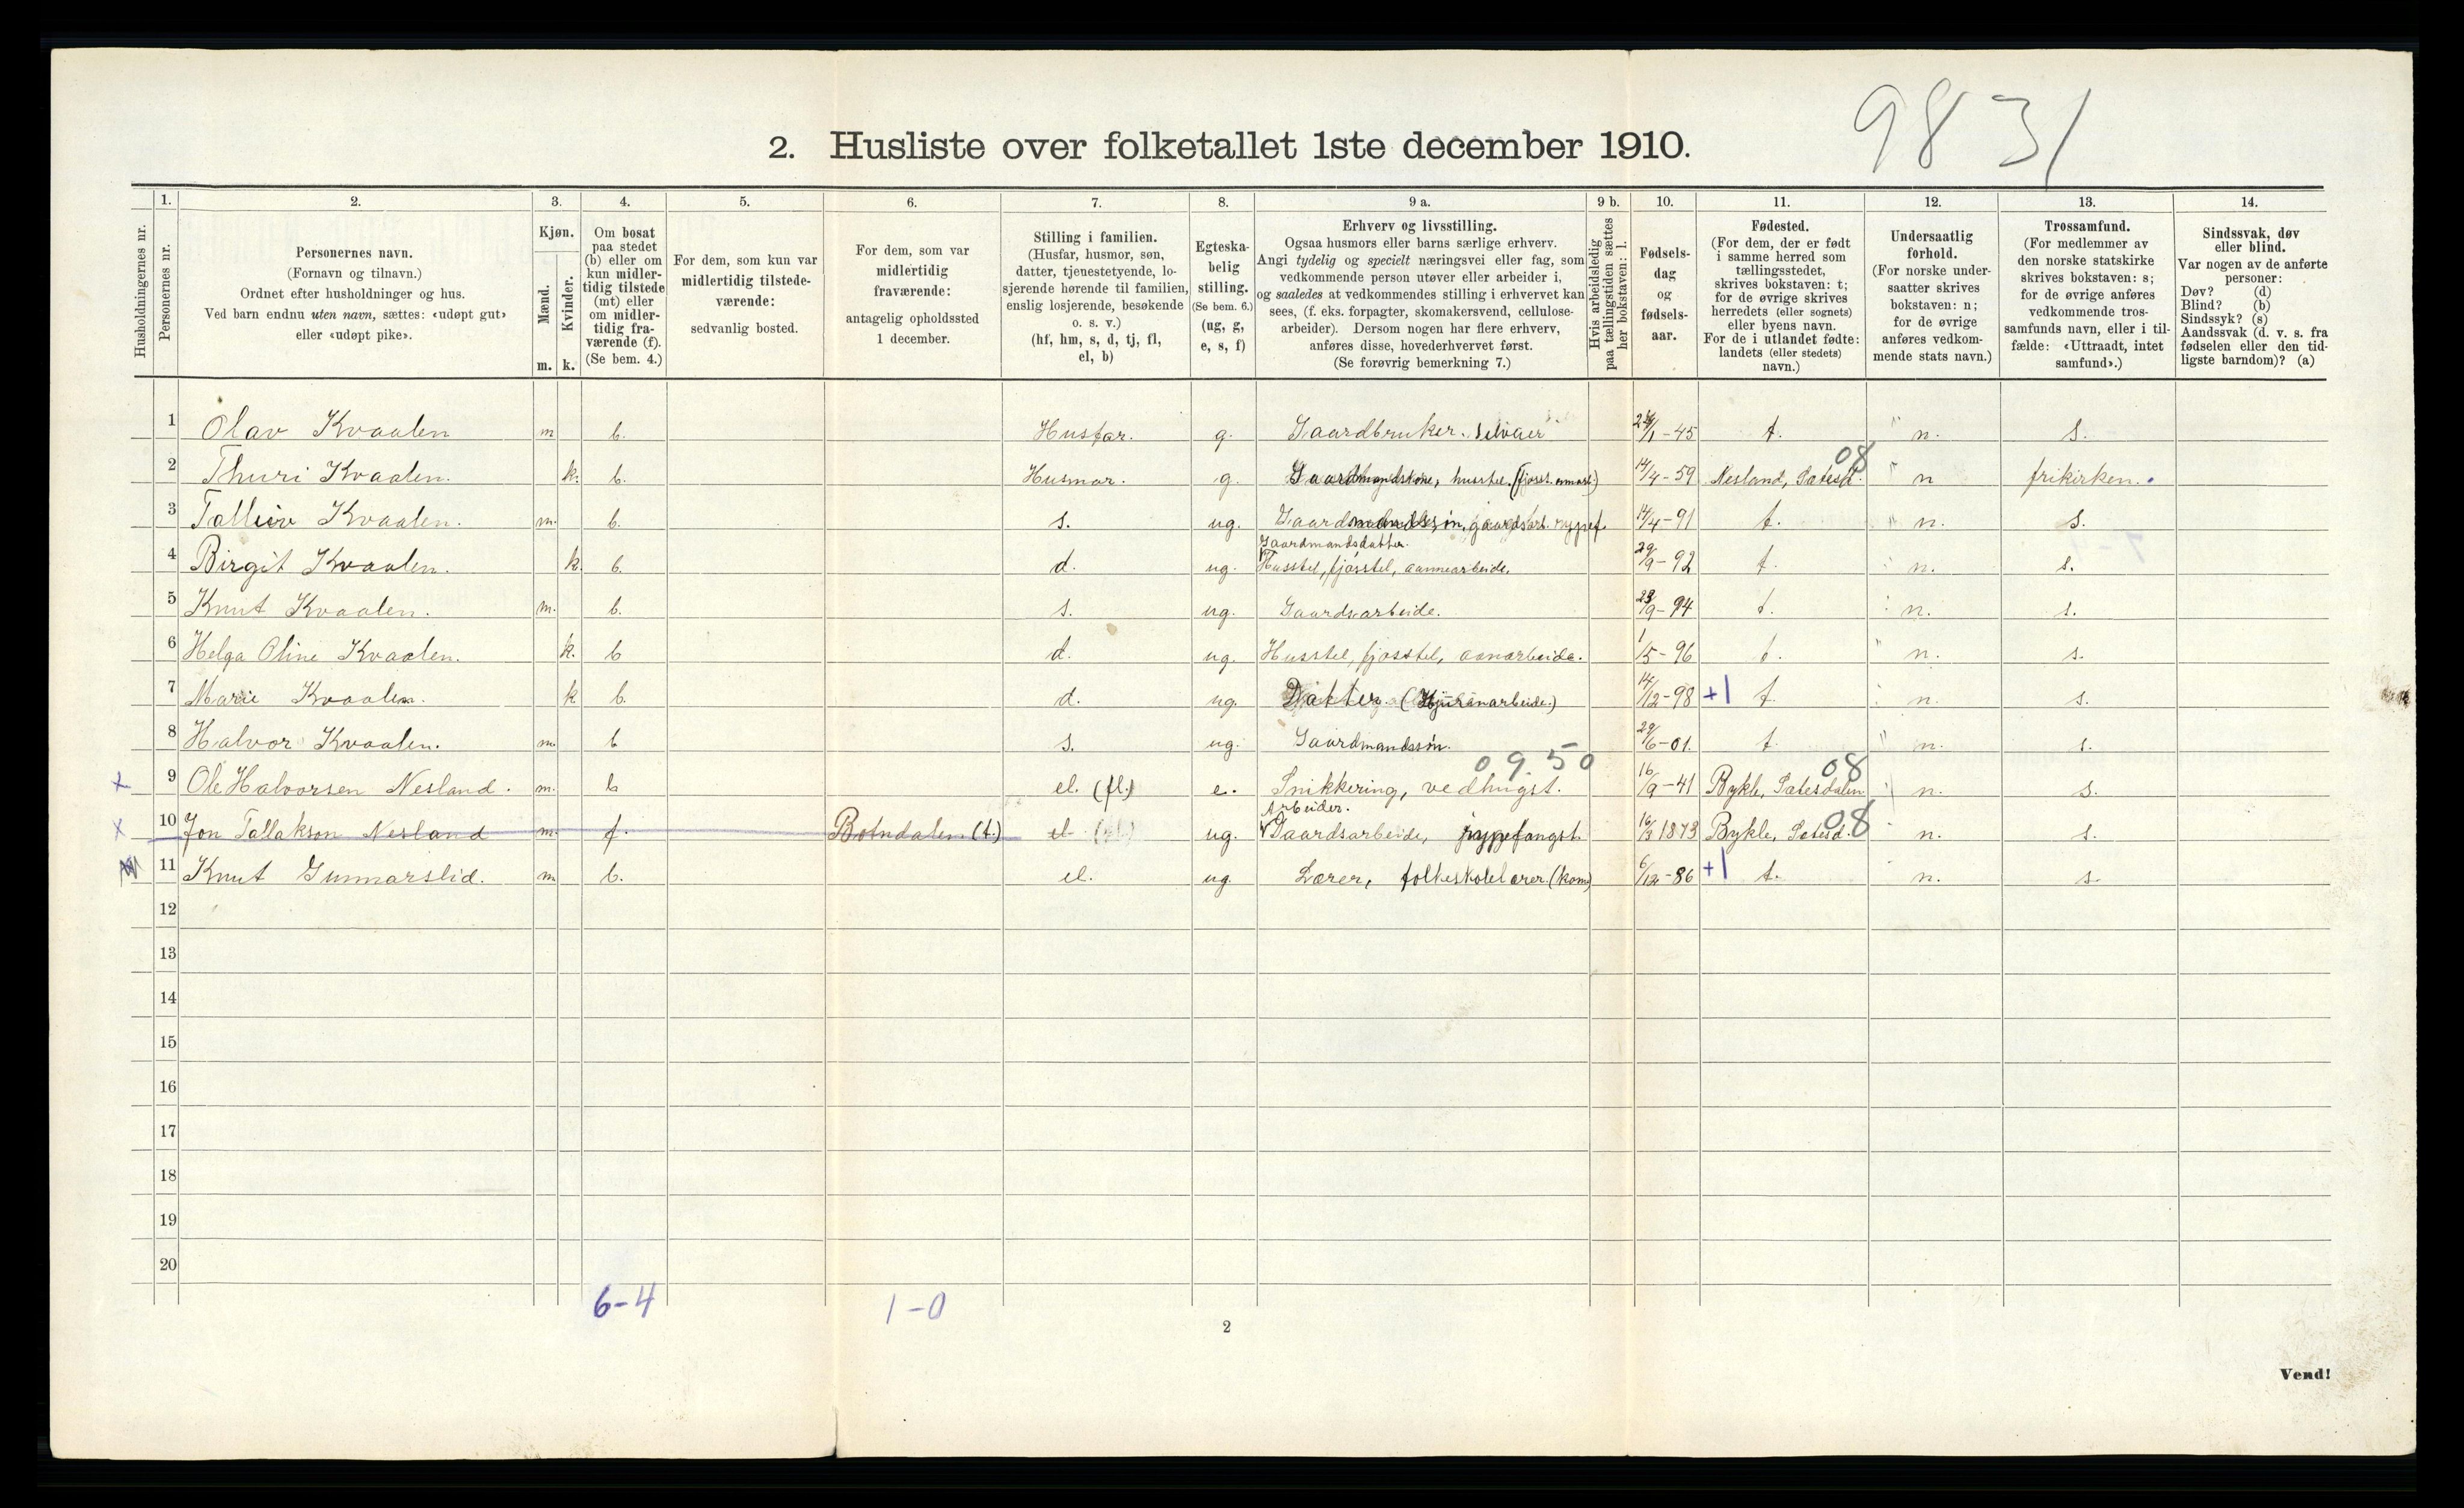 9831
2. Husliste over folketallet 1ste december 1910.
Husholdningernes nr.
1. Personernes nr.
2. Personernes navn. (Fornavn og tilnavn.) Ordnet efter husholdninger og hus. Ved barn endnu uten navn, sættes: «udøpt gut» eller «udøpt pike».
3. Kjøn. Mænd. m. Kvinder. k.
4. Om bosat paa stedet (b) eller om kun midlertidig tilstede (mt) eller om midlertidig fraværende (f). (Se bem. 4.)
5. For dem, som kun var midlertidig tilstedeværende: sedvanlig bosted.
6. For dem, som var midlertidig fraværende: antagelig opholdssted 1 december.
7. Stilling i familien. (Husfar, husmor, søn, datter, tjenestetyende, losjerende hørende til familien, enslig losjerende, besøkende o. s. v.) (hf, hm, s, d, tj, fl, el, b)
8. Egteskabelig stilling. (Se bem. 6.) (ug, g, e, s, f)
9 a. Erhverv og livsstilling. Ogsaa husmors eller barns særlige erhverv. Angi tydelig og specielt næringsvei eller fag, som vedkommende person utøver eller arbeider i, og saaledes at vedkommendes stilling i erhvervet kan sees, (f. eks. forpagter, skomakersvend, cellulosearbeider). Dersom nogen har flere erhverv, anføres disse, hovederhvervet først. (Se forøvrig bemerkning 7.)
9 b. Hvis arbeidsledig paa tællingstiden sættes her bokstaven: l.
10. Fødselsdag og fødselsaar.
11. Fødested. (For dem, der er født i samme herred som tællingsstedet, skrives bokstaven: t; for de øvrige skrives herredets (eller sognets) eller byens navn. For de i utlandet fødte: landets (eller stedets) navn.)
12. Undersaatlig forhold. (For norske undersaatter skrives bokstaven: n; for de øvrige anføres vedkommende stats navn.)
13. Trossamfund. (For medlemmer av den norske statskirke skrives bokstaven: s; for de øvrige anføres vedkommende trossamfunds navn, eller i tilfælde: «Uttraadt, intet samfund».)
14. Sindssvak, døv eller blind. Var nogen av de anførte personer: Døv? (d) Blind? (b) Sindssyk? (s) Aandssvak (d. v. s. fra fødselen eller den tidligste barndom)? (a)
1 Olav Kvaalen m b. Husfar. g. Gaardbruker. Selveier 24/1-45 t. n. s.
2 Thuri Kvaalen. k. b. Husmor. g. Gaardmandskone, husstel. 14/4-59 Nesland, Sætesd. 08 n frikirken.
3 Talleiv Kvaalen. m. b. s. ug. Gaardmandssøn, gaardsarb. rypef. 14/4-91 t. n. s.
4 Birgit Kvaalen. k. b. d. ug. Gaardmandsdatter. Husstel, fjøsstel, aannearbeide. 29/9-92 t. n. s.
5 Knut Kvaalen. m. b. s. ug. Gaardsarbeide. 23/9-94 t. n. s.
6 Helga Oline Kvaalen. k. b d. ug. Husstel, fjøsstel, aanarbeide. 1/5-96 t. n. s.
7 Marie Kvaalen. k b. d. ug. Datter. 14/12-98 +1 t. n. s.
8 Halvor Kvaalen. m. b s. ug. Gaardmandssøn. 29/6-01. t. n. s.
x 9 Ole Halvorsen Nesland. m. b el. (fl.) e. Snikkering, vedhugst. 09.50 16/9-41 Bykle, Sætesdalen 08 n. s.
x 10 Jon Tallakson Nesland m. f. Botndalen (t.) el ug. Arbeider. Gaardsarbeide, rypefangst. 16/3 1873 Bykle, Sætesd. 08 n. s.
11 Knut Gunnarslid. m b. el. ug. Lærer, folkeskolelærer. (kom) 6/12-86 +1 t. n. s.
12
13
14
15
16
17
18
19
20
6-4 1-0
2
Vend!